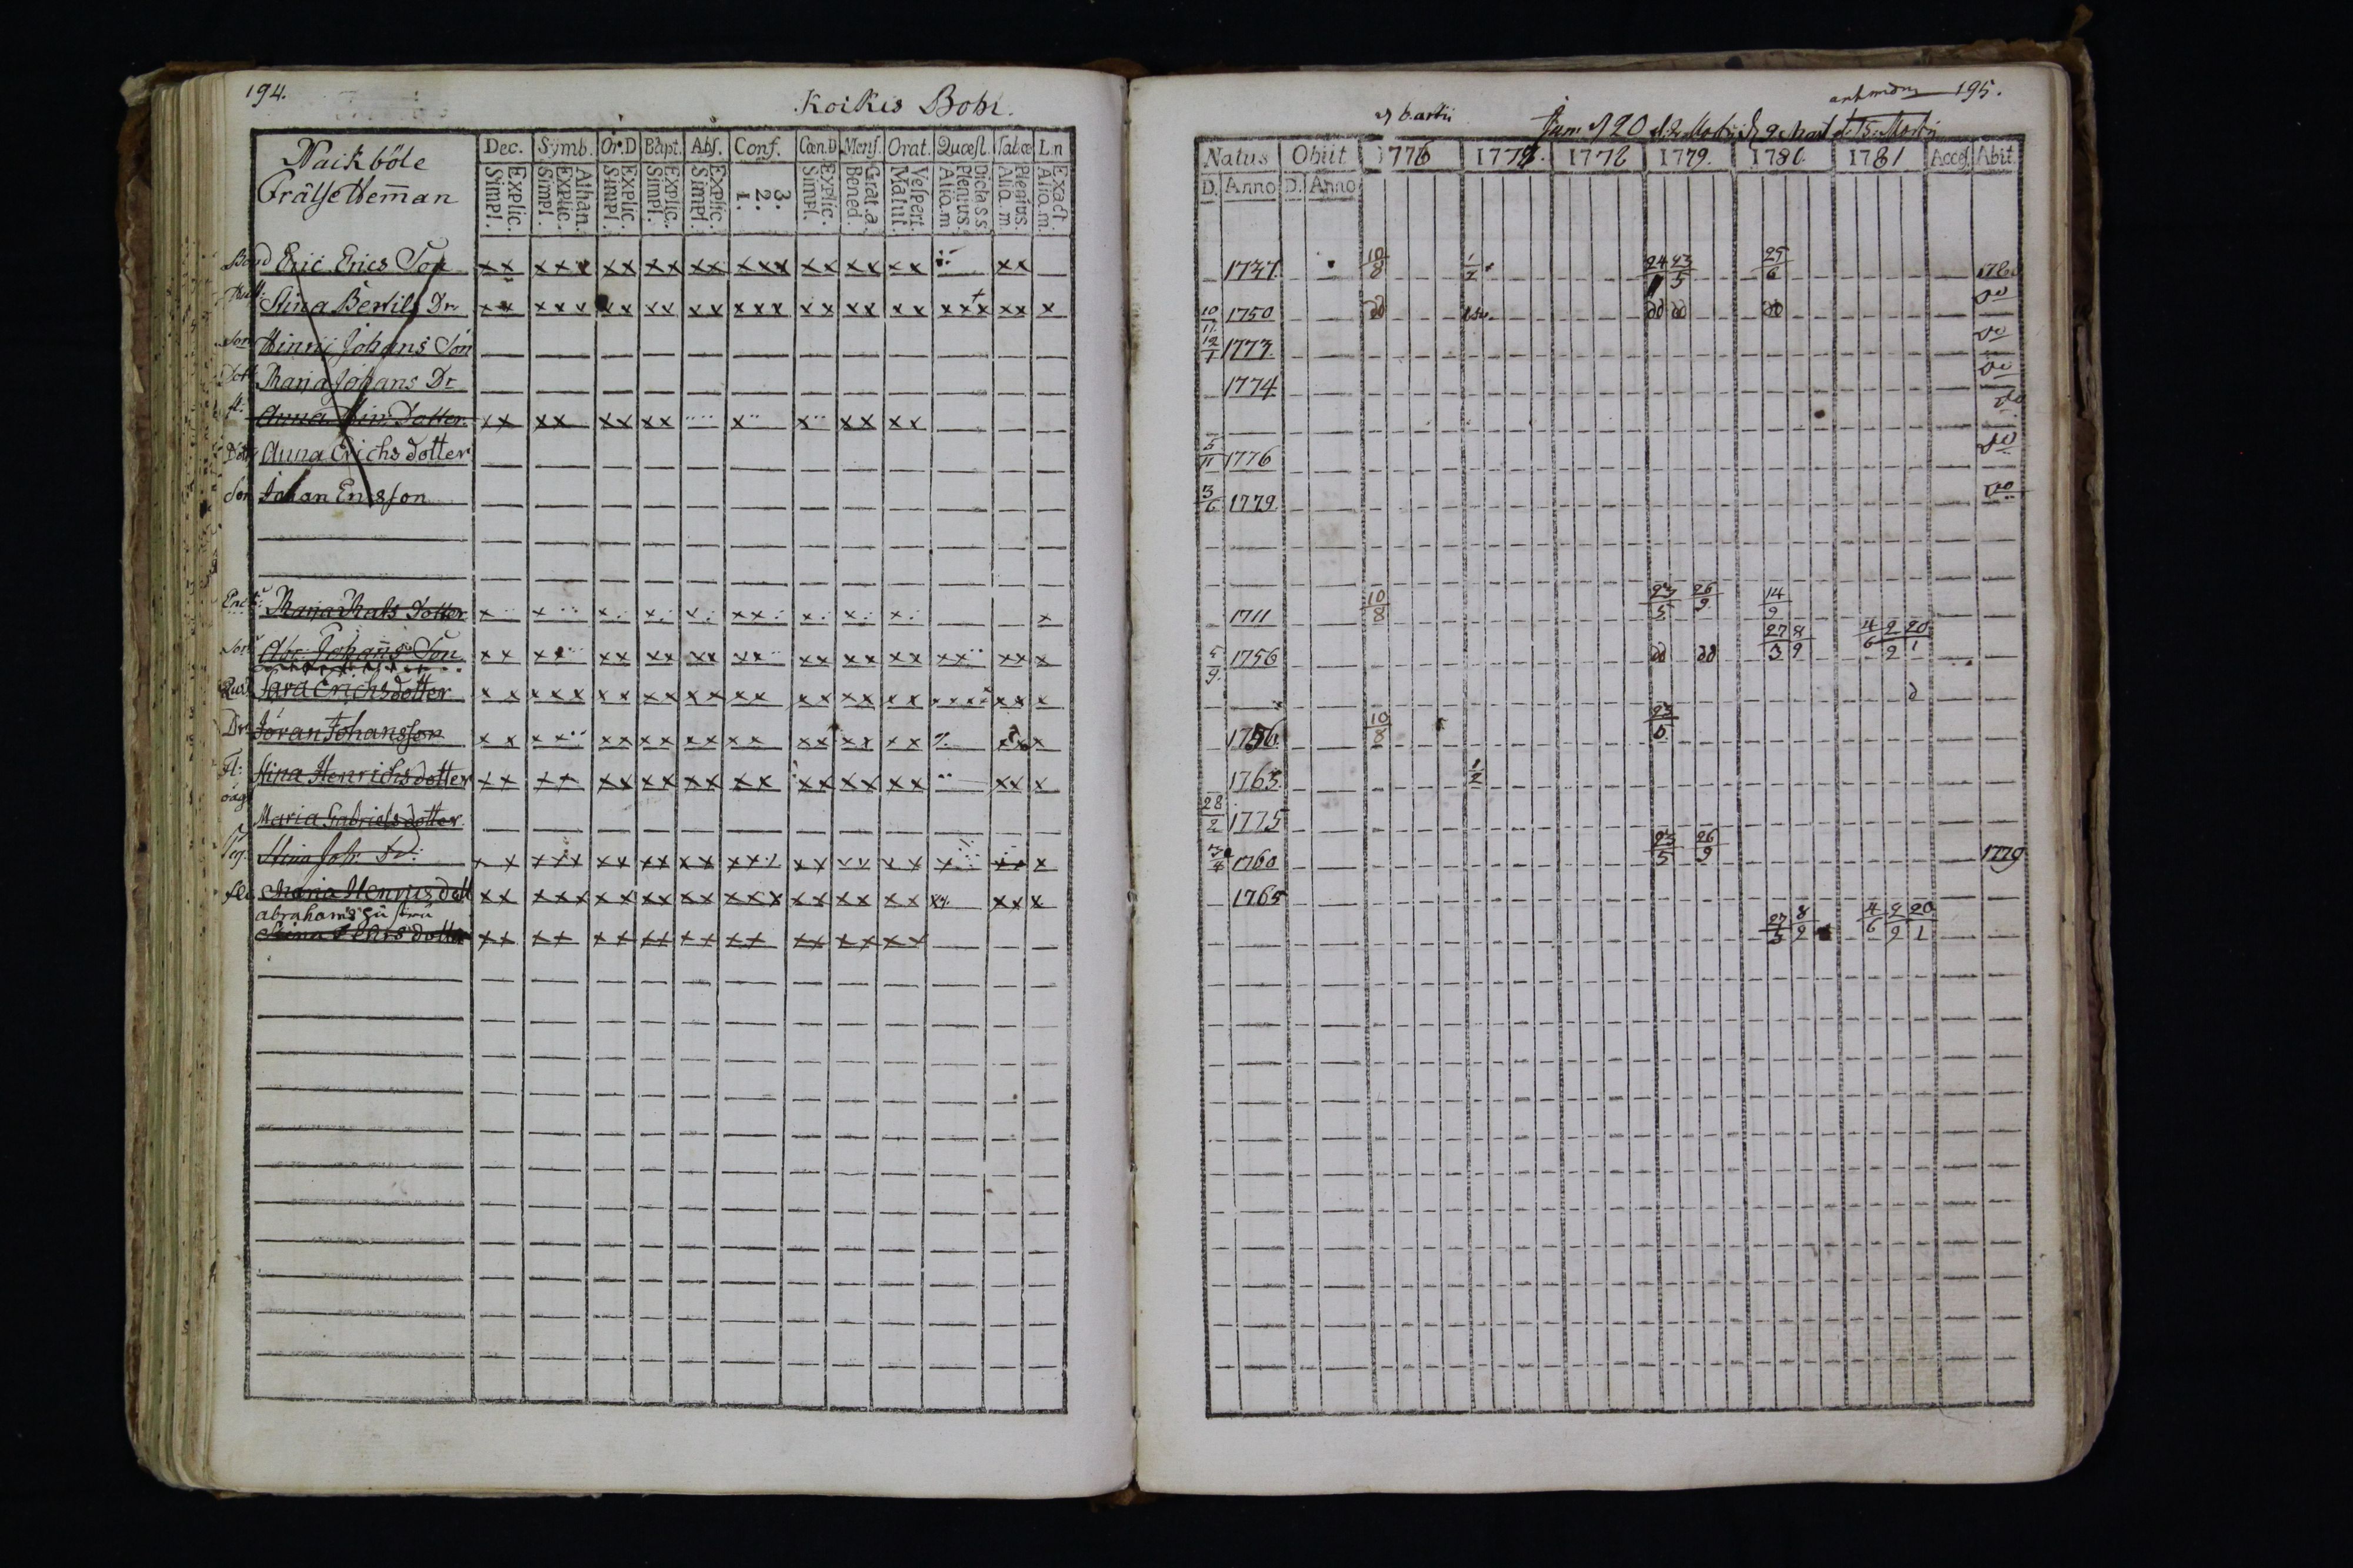 194.
Koikis Bohl.
Naickböle
Frälse Hem̄an
Dec. Symb. Or.D Bapt. Abs. Conf. Cœn.D Mens. Orat. Quæst. Tabœ L.n
Explic. Simpl. Athan. Explic. Simpl. Explic. Simpl. Explic. Simpl. Explic. Simpl. 3. 2. 1. Explic. Simpl. Grat.a Bened. Vespert. Matut. Dicta s s Plenius. Aliq.m. Plenius. Aliq.m Exact Aliq.m.
Bond Eric Erics Son
Stina Bertils Dr
Son Hinric Johans Son
Dott Maria Johans Dr
Anna Hin Dotter
Dott Anna Erichs dotter
Son Johan Ericsson
Maria Mats Dotter
Son Abr. Johans Son
Sara Erichsdotter
Dr Jöran Johansson
Fl: Stina Henrichsdotter
Maria Gabrielsdotter
Stina Joh. Dr
Maria Henricsdott
abrahams hustru
195.
Natus Obiit 1776 1777. 1778 1779. 1780. 1781 Access. Abit.
D. Anno D. Anno
1737. 10/8 1/2 24 23/5 25/6 1780
10/11 1750 do do do do do
12/1 1773. do
1774 do
do
5/11 1776 do
3/6 1779. do
1711 10/8 23/5 26/9 14/9
5/9. 1756 do do 27/3 8/9 4/6 2/9 20/1
1756. 10/8 23/5
1763. 1/2
28/2 1775
1760 23/5 26/9 1779
1765
27/3 8/9 4/6 2/9 20/1